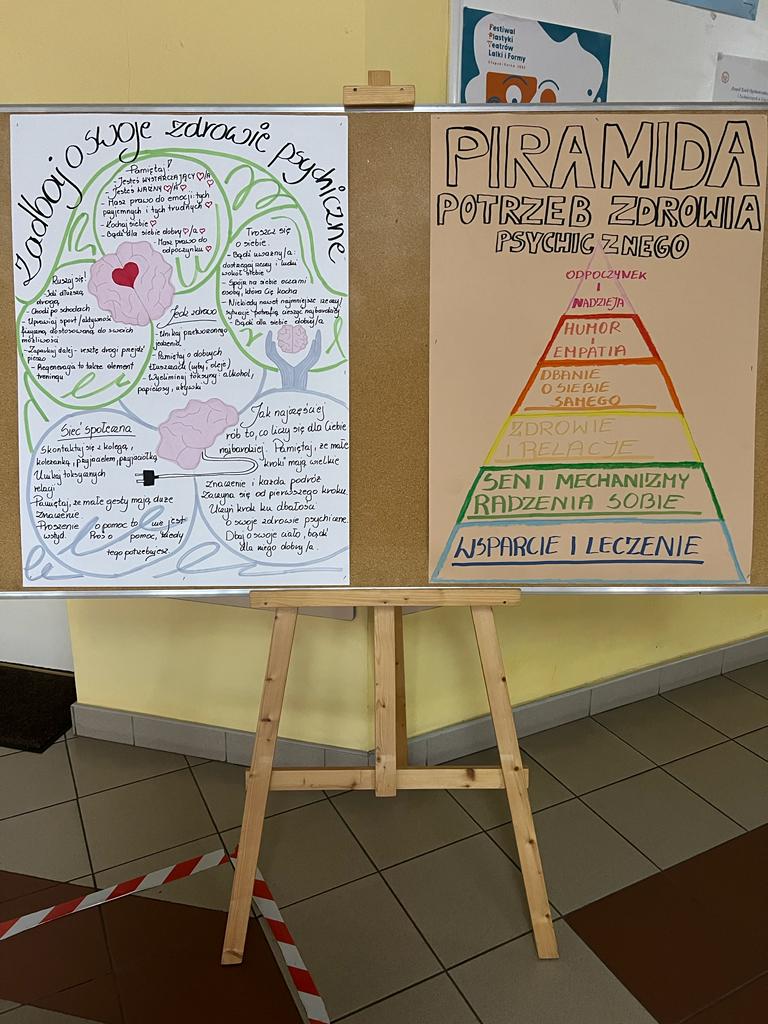 Festiwal
Plastyki
Teatrów
Lalki i Formy
Zadbaj o swoje zdrowie psychiczne
Pamiętaj!
- Jesteś WYSTARCZAJĄCY/A
- Jesteś WAŻNY/A
- Masz prawo do emocji: tych
przyjemnych i tych trudnych
- Kochaj siebie
- Bądź dla siebie dobry/a
- Masz prawo do
odpoczynku
Ruszaj się!
- Idź dłuższą
drogą,
- Chodź po schodach
- Uprawiaj sport/aktywność
fizyczną, dostosowaną do swoich
możliwości
- Zaparkuj dalej - resztę drogi przejdź
pieszo
- Regeneracja to także element
treningu
Jedz zdrowo
- Unikaj przetworzonego
jedzenia
- Pamiętaj o dobrych
tłuszczach (ryby, oleje)
- Wyeliminuj toksyny: alkohol,
papierosy, używki
Troszcz się
o siebie.
- Bądź uważny/a.
dostrzegaj rzeczy i ludzi
wokół siebie
- Spójrz na siebie oczami
osoby, która Cię kocha
- Niekiedy nawet najmniejsze rzeczy/
sytuacje potrafią cieszyć najbardziej
- Bądź dla siebie dobry/a
Sieć społeczna
Skontaktuj się z kolegą,
koleżanką, przyjacielem, przyjaciółką
Unikaj toksycznych
relacji
Pamiętaj, że małe gesty mają duże
znaczenie
Proszenie o pomoc to nie jest
wstyd. Proś o pomoc, kiedy
tego potrzebujesz
Jak najczęściej
rób to, co liczy się dla Ciebie
najbardziej. Pamiętaj, że małe
kroki mają wielkie
znaczenie i każda podróż
Zaczyna się od pierwszego kroku.
Uczyń krok ku dbałości
o swoje zdrowie psychiczne.
Dbaj o swoje ciało, bądź
dla niego dobry/a.
PIRAMIDA
POTRZEB ZDROWIA
PSYCHICZNEGO
ODPOCZYNEK
I
NADZIEJA
HUMOR
I
EMPATIA
DBANIE
O SIEBIE
SAMEGO
ZDROWIE
I RELACJE
SEN I MECHANIZMY
RADZENIA SOBIE
WSPARCIE I LECZENIE